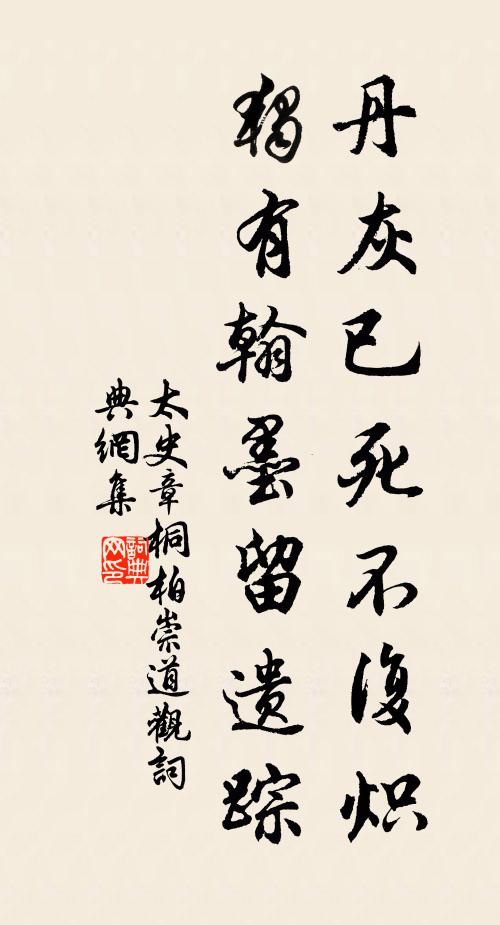 丹灰已死不復炽
獨有翰墨留遗踪
太史章桐柏崇道觀詞
典網集
詞典
网印